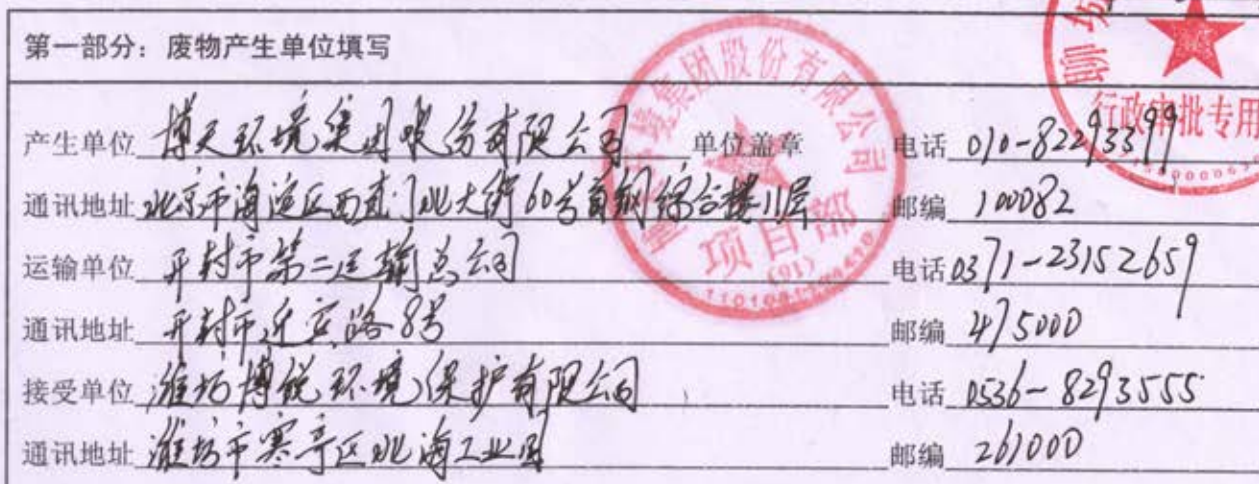 第一部分：废物产生单位填写
产生单位 博天环境集团股份有限公司 单位盖章 电话 010-82293399
通讯地址 北京市海淀区西直门北大街60号首钢综合楼11层 邮编 100082
运输单位 开封市第二运输总公司 电话 0371-23152659
通讯地址 开封市迎宾路8号 邮编 475000
接受单位 潍坊博锐环境保护有限公司 电话 0536-8293555
通讯地址 潍坊市寒亭区北海工业园 邮编 261000
境集团股份有限公司
项目部
(91)
行政审批专用